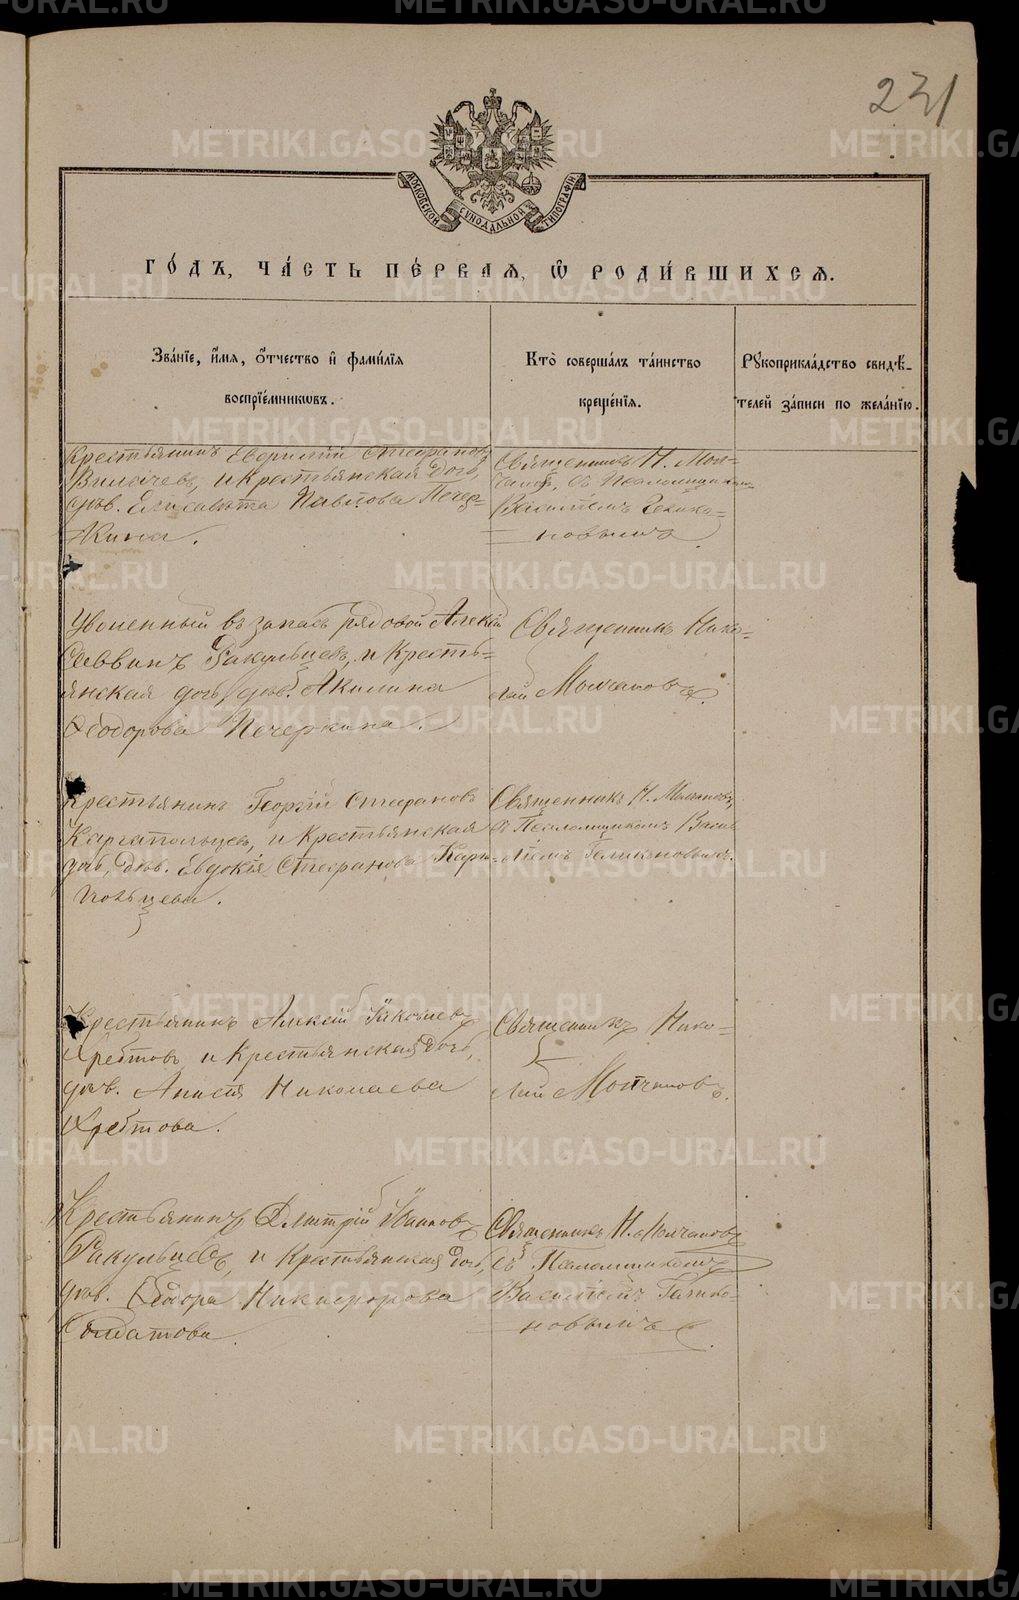 231
МОСКОВСКОЙ СѴНОДАЛЬНОЙ ТИПОГРАФІИ
ГО́ДЪ, ЧА́СТЬ ПЕ́РВАЯ, Ѿ РОДИ́ВШИХСЯ.
Зва́нїе, и҆́мя, ѻ҆́тчество и҆ фами́лїя
воспрїе́мникѡвъ.
Кто̀ соверша́лъ та́инство
креще́нїя.
Рꙋкоприкла́дство свидѣ́-
телей за́писи по жела́нїю.
Крестьянинъ Евфимій Стефановъ
, и крестьянская дочь,
дѣв. Елисавета Павлова Печер-
кина.
Священникъ Н. Мол-
чановъ, съ Псаломщикомъ
Василіемъ Галика-
новымъ
Уволенный въ запасъ рядовой Алексій
Саввинъ Ракульцевъ, и кресть-
янская дочь, дѣв. Акилина
Ѳеодорова Печеркина.
Священникъ Нико-
лай Молчановъ.
Крестьянинъ Георгій Стефановъ
Каргапольцевъ, и крестьянская
дочь, дѣв. Евдокія Стефанова Карга-
польцева.
Священникъ Н. Молчановъ,
съ Псаломщикомъ Васи-
ліемъ Галикановымъ.
Крестьянинъ Алексій Іаковлевъ
Хребтовъ и крестьянская дочь,
дѣв. Анисія Николаева
Хребтова.
Священникъ Нико-
лай Молчановъ.
Крестьянинъ Димитрій Іоанновъ
Ракульцевъ, и крестьянская дочь,
дѣв. Ѳеодора Никифорова
Солдатова.
Священникъ Н. Молчановъ
съ Псаломщикомъ
Василіемъ Галика-
новымъ
METRIKI.GASO-URAL.RU